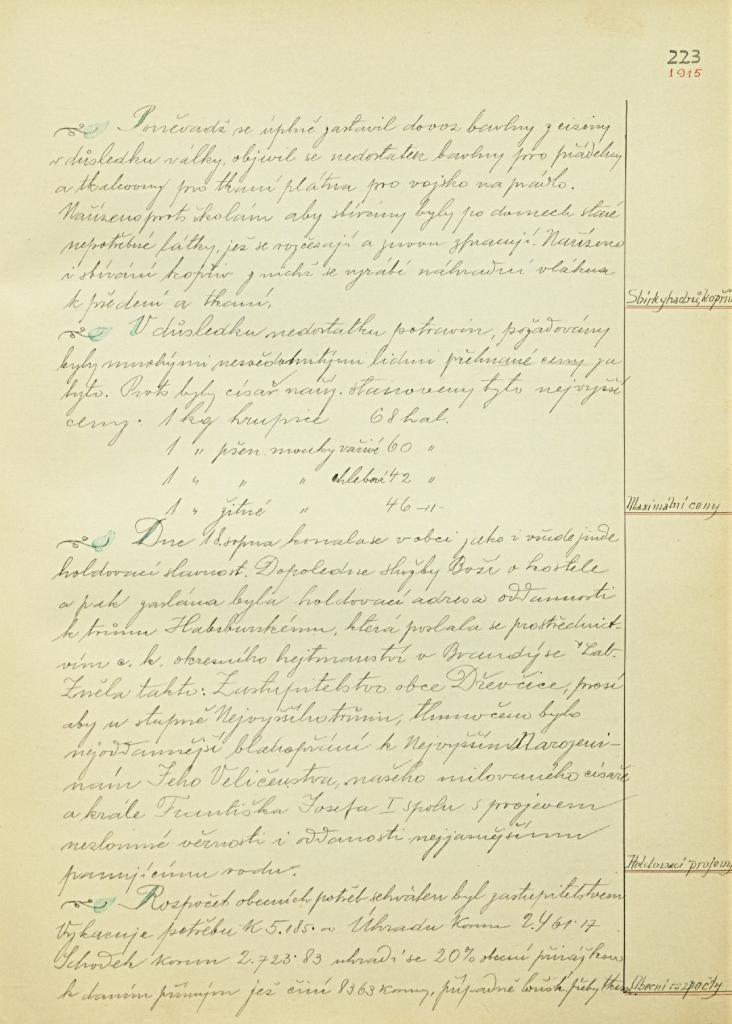 223
1915
Poněvadž se úplně zastavil dovoz bavlny z ciziny
v důsledku války, objevil se nedostatek bavlny pro přádelny
a tkalcovny pro tkaní plátna pro vojsko na prádlo.
Nařízeno proto školám aby sbírány byly po domech staré
nepotřebné látky, jež se rozčesají a znovu zpracují. Nařízeno
i sbírání kopřiv z nichž se vyrábí náhradní vlákna
k předení a tkaní.
Sbírky hadrů, kopřiv
V důsledku nedostatku potravin, požadovány
byly mnohými nesvědomitými lidmi přehnané ceny za
tyto. Proto byly císař. naříz. stanoveny tyto nejvyšší
ceny. 1 kg krupice 68 hal.
1 " pšen. mouky vařivé 60 "
1 " " " chlebové 42 "
1 " žitné " 46 -"-
Maximální ceny
Dne 18. srpna konala se v obci jako i všude jinde
holdovací slavnost. Dopoledne služby Boží v kostele
a pak zaslána byla holdovací adresa oddanosti
k trůnu Habsburskému, která poslala se prostřednict-
vím c. k. okresního hejtmanství v Brandýse n/Lab.
Zněla takto: Zastupitelstvo obce Dřevčice, prosí
aby u stupně Nejvyššího trůnu, tlumočeno bylo
nejoddanější blahopřání k Nejvyšším Narozeni-
nám Jeho Veličenstva, našeho milovaného císaře
a krále Františka Josefa I spolu s projevem
nezlomné věrnosti i oddanosti nejjasnějšímu
panujícímu rodu.
Holdovací projevy
Rozpočet obecních potřeb schválen byl zastupitelstvem
Vykazuje potřebu K 5.185.- a Úhradu Korun 2.461.17
Schodek Korun 2.723.83 uhradí se 20% obecní přirážkou
k daním přímým jež činí 8363 koruny, případně
Obecní rozpočty